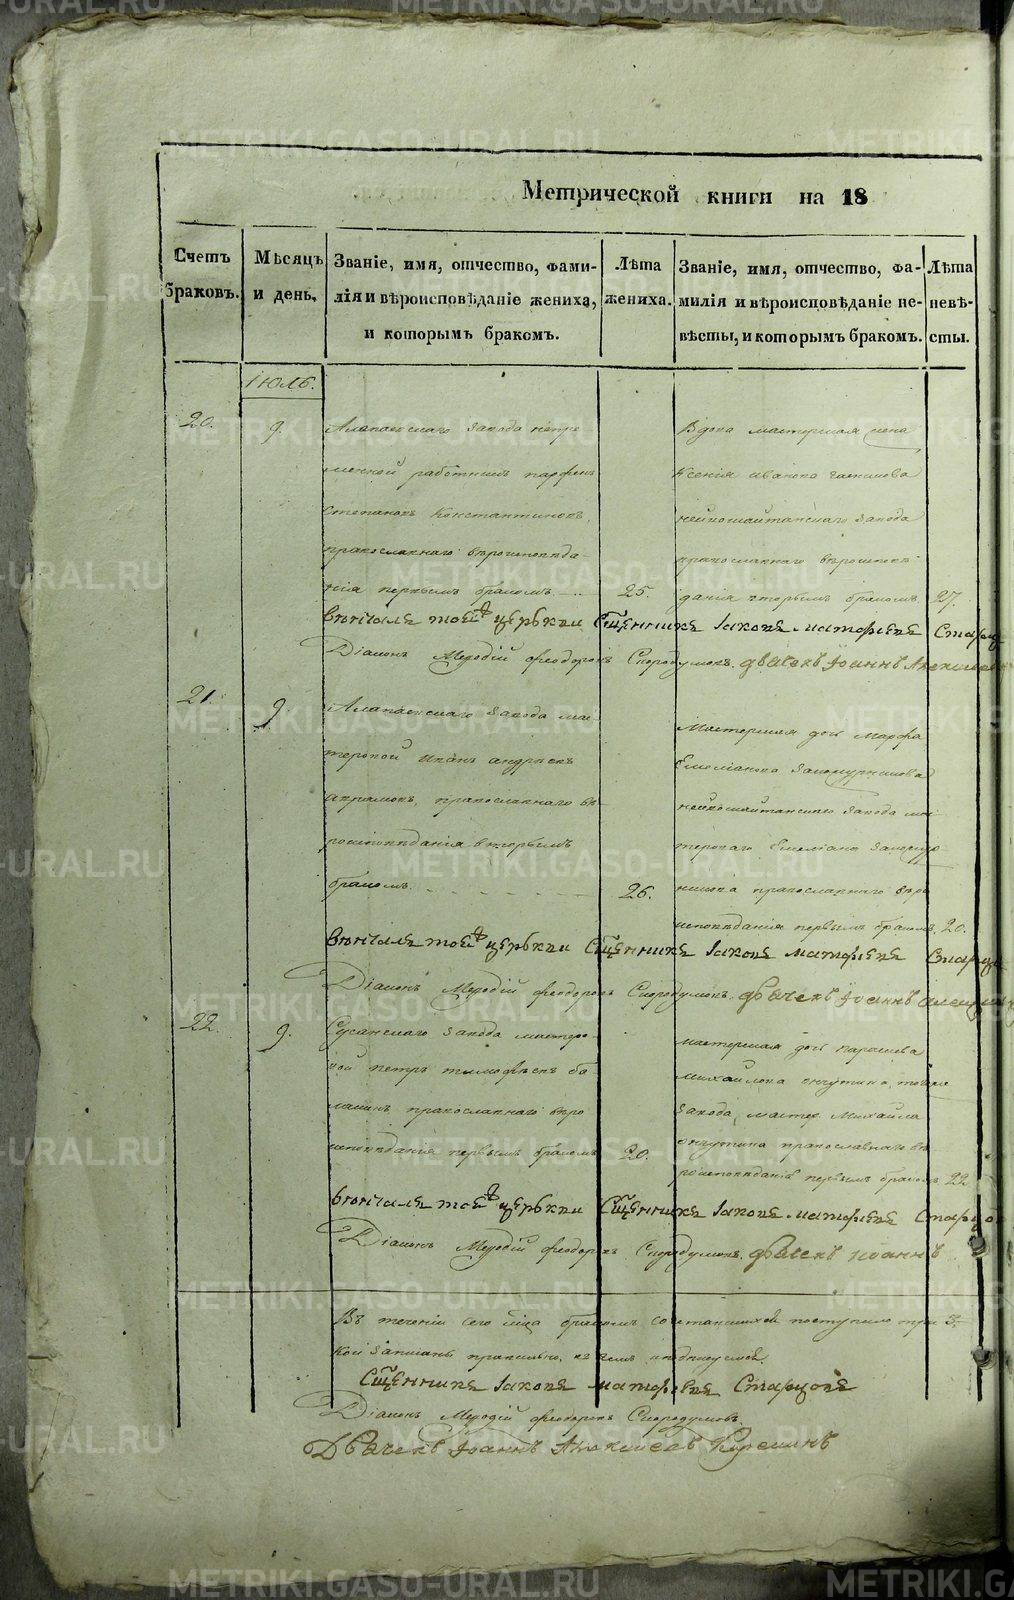 Метрической книги на 18
Счетъ браковъ.
Мѣсяцъ и день.
Званіе, имя, отчество, фами-
лія и вѣроисповѣданіе жениха,
и которымъ бракомъ.
Лѣта
жениха.
Званіе, имя, отчество, фа-
милія и вѣроисповѣданіе не-
вѣсты, и которымъ бракомъ.
Лѣта
невѣ-
сты.
Іюль.
20.
9.
Алапаевскаго завода непре
менной работникъ парфенъ
Степановъ Константиновъ,
православнаго вѣроисповѣда-
нія первымъ бракомъ
25.
Вдова мастерская жена
Ксенія иванова
нейвошайтанскаго завода
православнаго вѣроисповѣ-
данія вторымъ бракомъ
27.
вѣнчалъ тоей церькви Сщенникъ Іаковъ матфѣевъ Старцо
Діаконъ Меѳодій феодоровъ Скородумовъ. дьячекъ Іоаннъ Алексѣев
21.
9.
Алапаевскаго завода мас
теровой иванъ андрѣевъ
абрамовъ, православнаго вѣ-
роисповѣданія вторымъ
бракомъ.
26.
Мастерская дочь Марфа
Емеліанова
нейвошайтанскаго завода мас
тероваго Емеліана
православнаго вѣро
исповѣданія первымъ бракомъ
20.
вѣнчалъ тоей церькви Сщенникъ Іаковъ матфѣевъ Старцо
Діаконъ Меѳодій феодоровъ Скородумовъ. дьячекъ Іоаннъ алексѣев
22.
9.
Сусанскаго завода мастеро-
вой петръ тимофѣевъ ба
лакинъ православнаго вѣро
исповѣданія первымъ бракомъ
20.
мастерская дочь парасковья
михайлова тогоже
завода мастер. Михайла
православнаго вѣ
роисповѣданія первымъ бракомъ
22
вѣнчалъ тоей церькви Сщенникъ Іаковъ матфѣевъ Старцов
Діаконъ Меѳодій феодоровъ Скородумовъ. дьячекъ Іоаннъ
Въ теченіи сего мѣца бракомъ сочетавшихся поступило три 3.
кои записаны правильно, въ чемъ и подписуемся.
Сщенникъ Іаковъ матфѣевъ Старцовъ
Діаконъ Меѳодій феодоровъ Скородумовъ
Дьячекъ Іоаннъ Алексѣев
METRIKI.GASO-URAL.RU